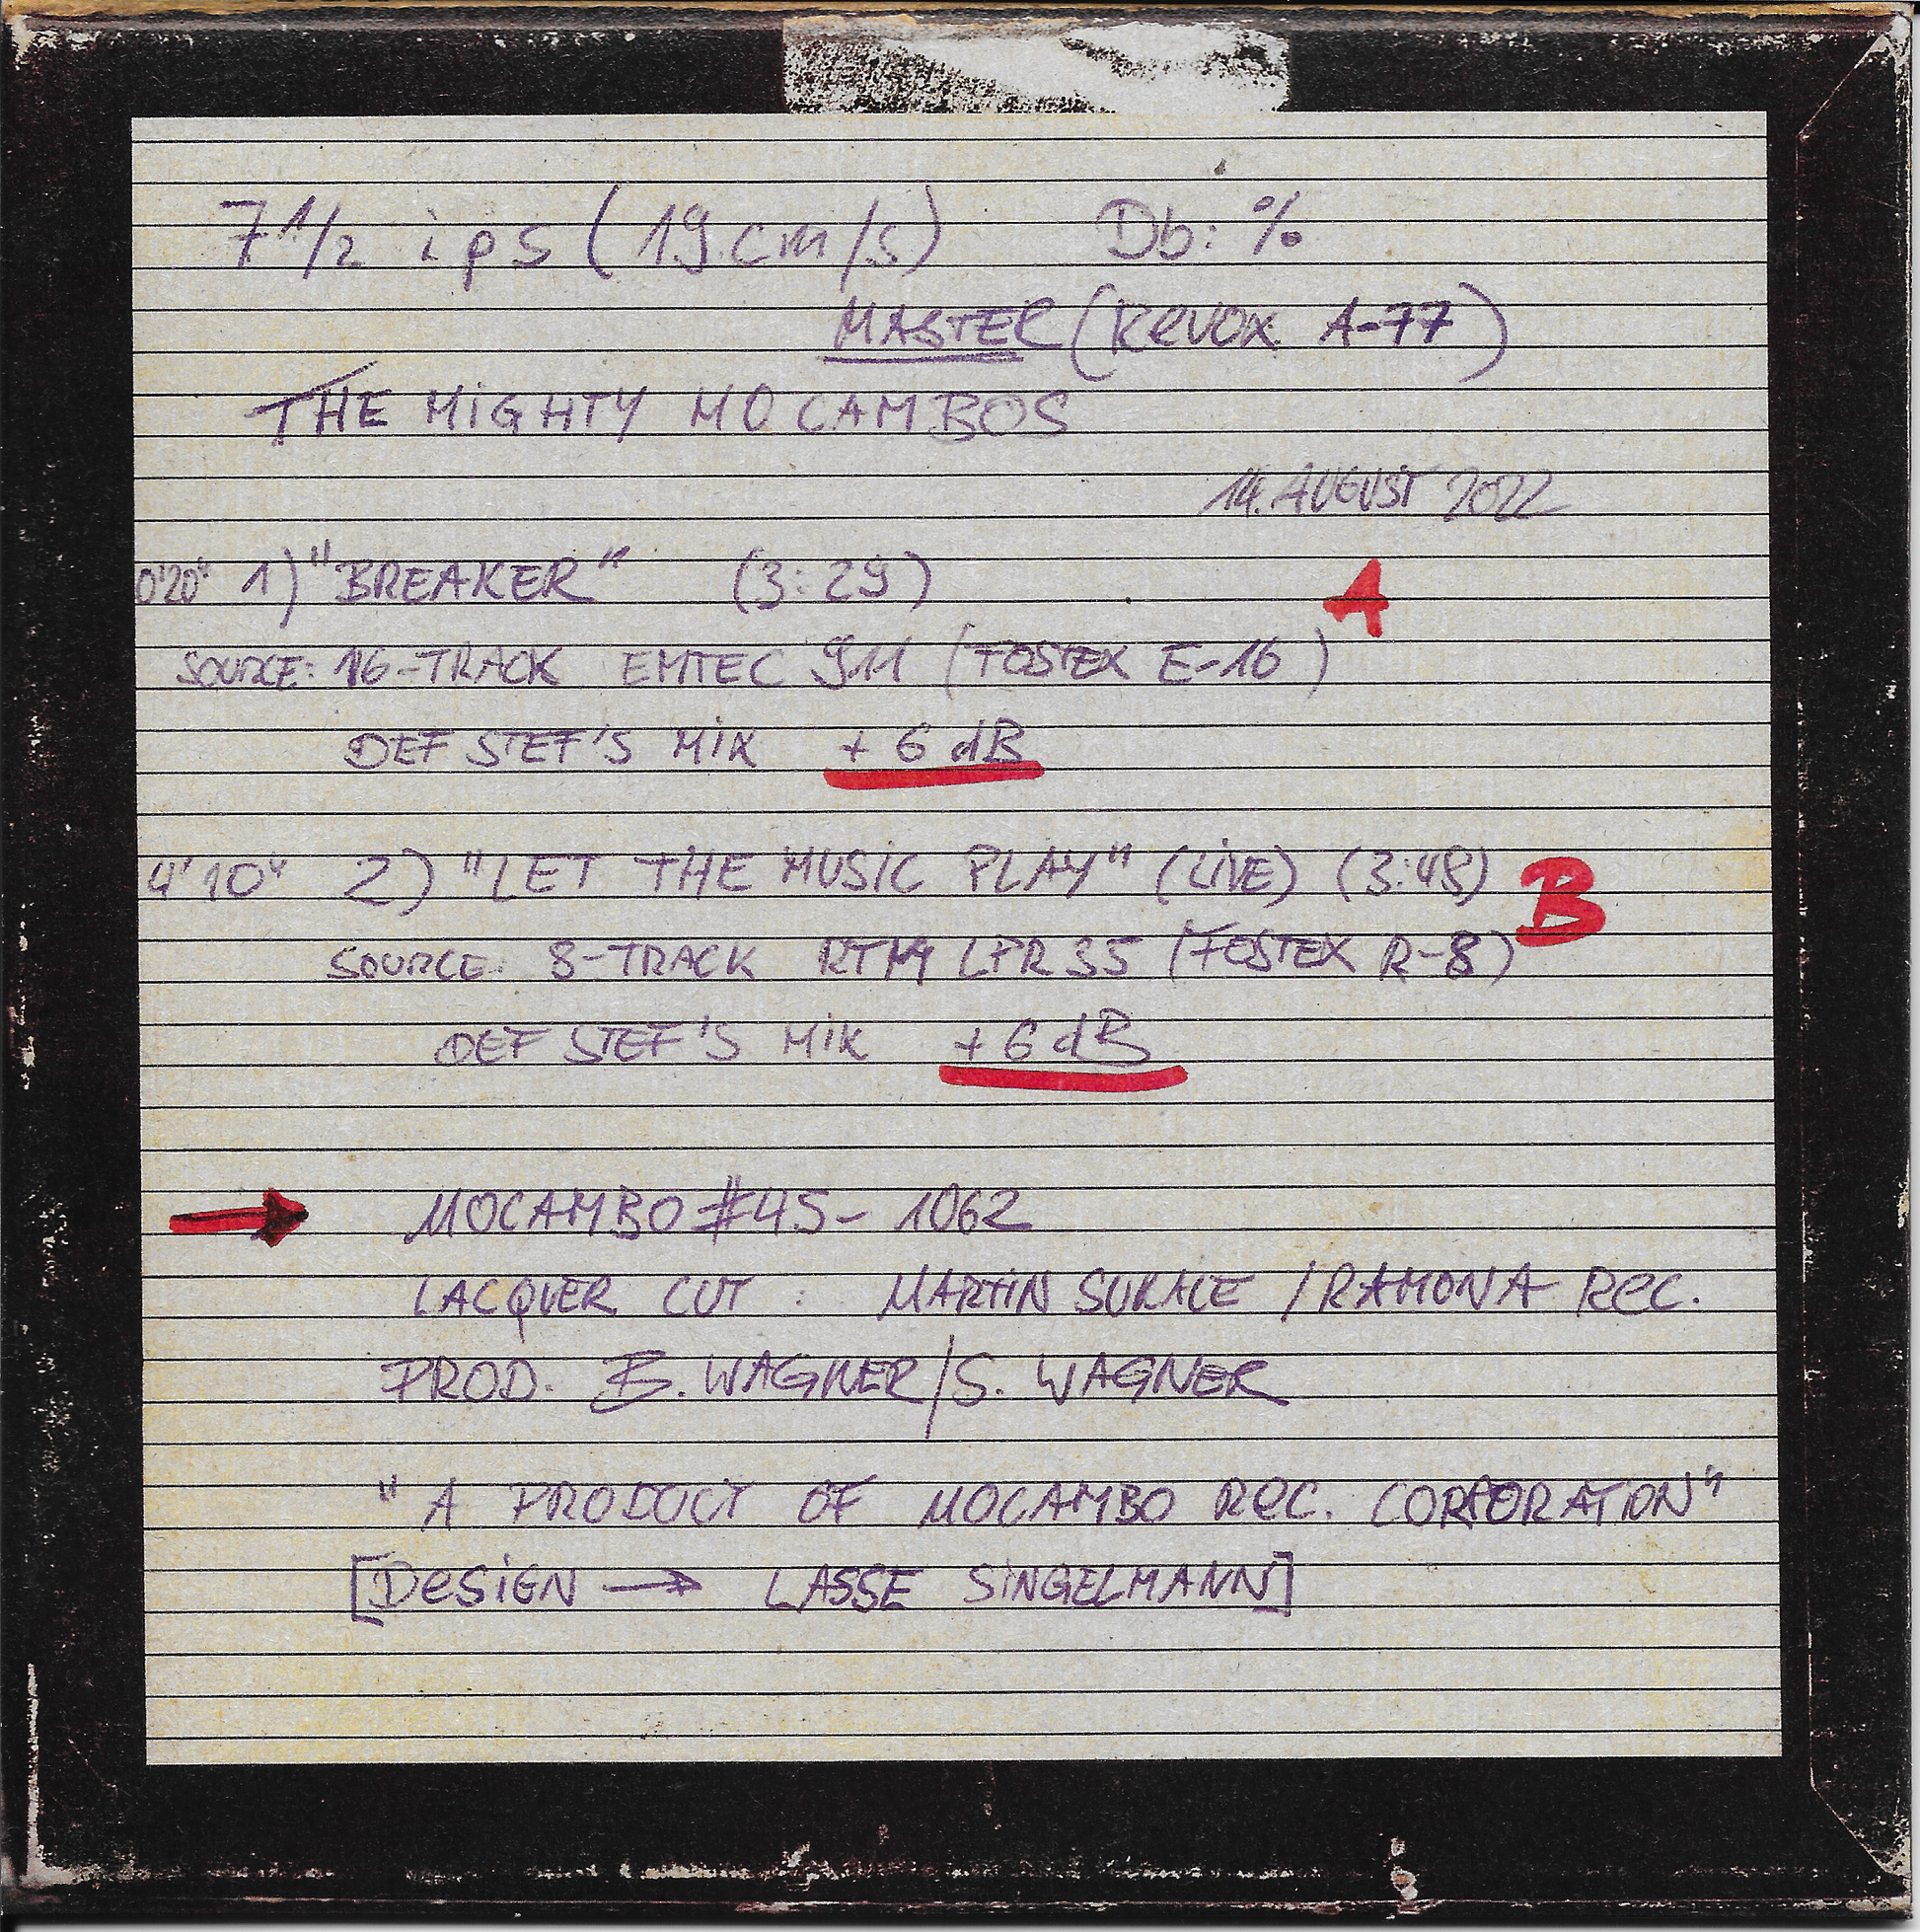 7 1/2 ips (19 cm/s) Db: %
MASTER (REVOX A-77)
THE MiGHTY MOCAMBOS
14. AUGUST 2022
0'20" 1) "BREAKER" (3:29) A
SOURCE: 16-TRACK EMTEC 911 (FOSTEX E-16)
DEF STEF'S MiX + 6 dB
4'10" 2) "LET THE MUSiC PLAY" (LiVE) B
SOURCE: 8-TRACK RTM LPR35 (FOSTEX R-8)
DEF STEF'S MiX + 6 dB
→ MOCAMBO #45-1062
LACQUER CUT: MARTiN / RAMONA Rec.
PROD. B. WAGNER / S. WAGNER
"A PRODUCT OF MOCAMBO Rec. CORPORATION"
[DeSiGN → LASSE SiNGELMANN]